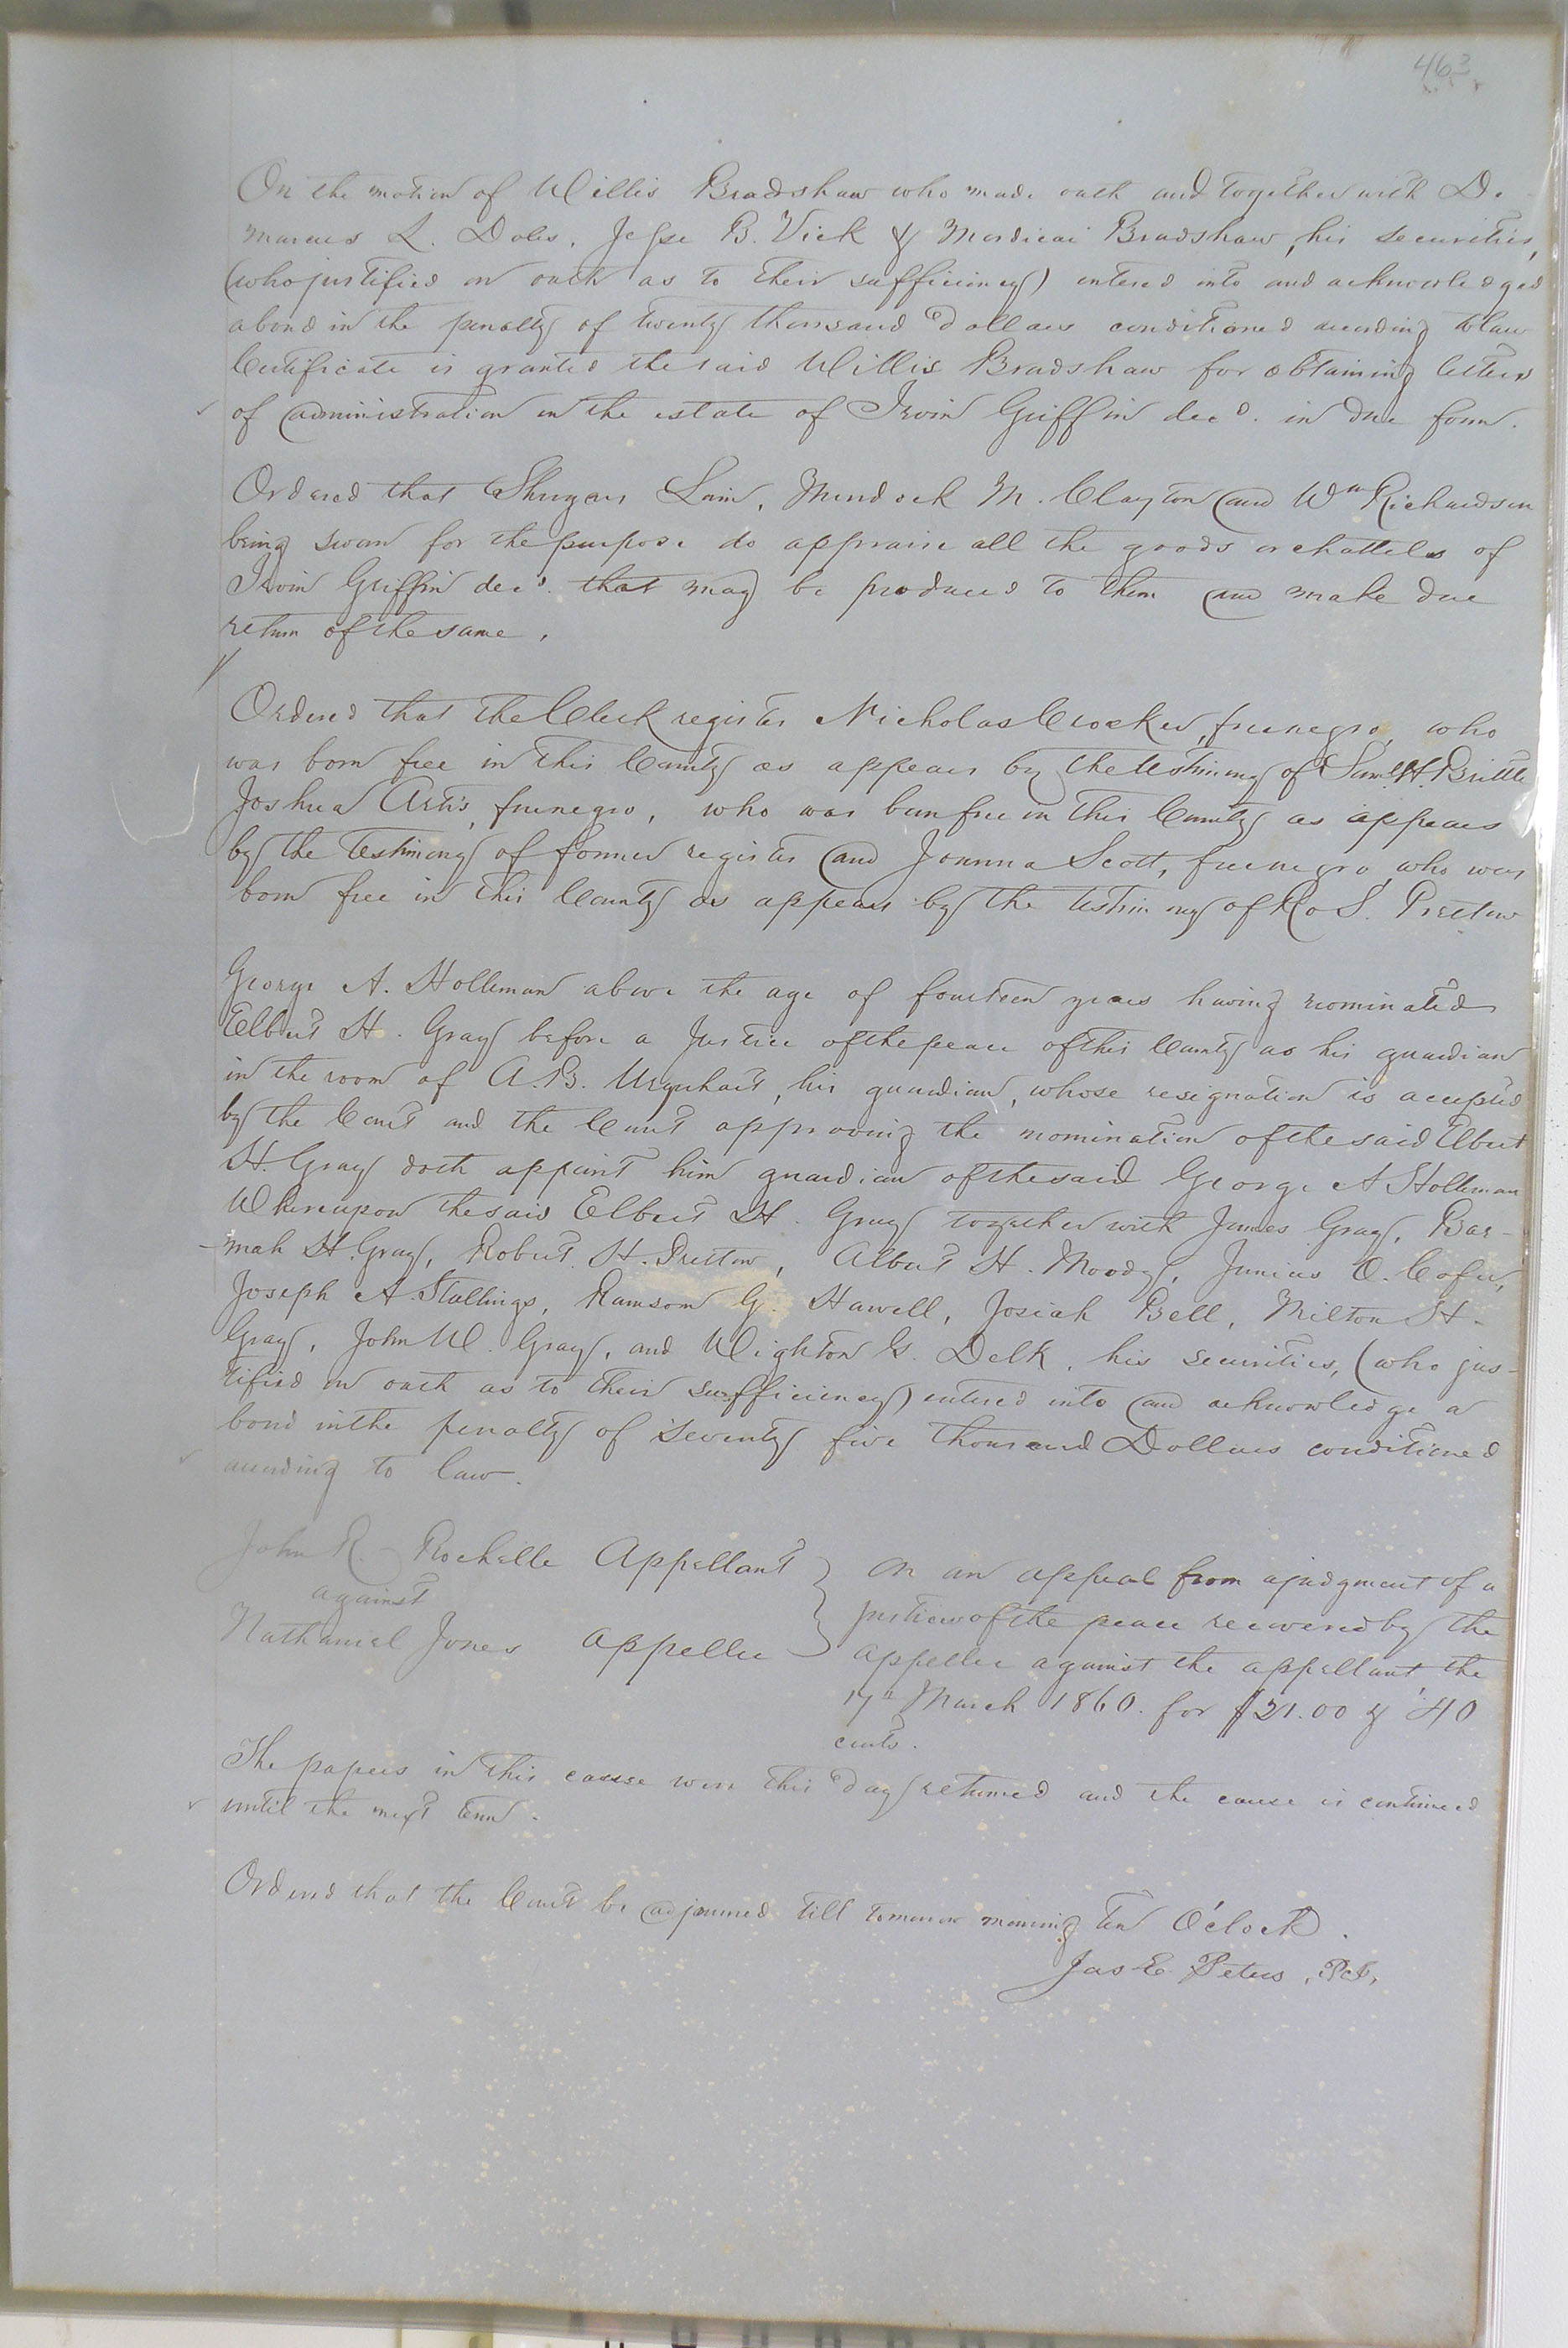 463
On the motion of Willis Bradshaw who made oath and together with De-
marcus L. Doles, Jesse B. Vick & Mordicai Bradshaw, his securities,
(who justified on oath as to their sufficiency) entered into and acknowledged
a bond in the penalty of twenty thousand dollars conditioned according to law
Certificate is granted the said Willis Bradshaw for obtaining letters
of administration on the estate of Irvin Griffin decd. in due form.
Ordered that Shugars Lain, Murdock M. Clayton and Wm Richardson
being sworn for the purpose do appraise all the goods or chattels of
Irvin Griffin decd. that may be produced to them and make due
return of the same.
Ordered that the Clerk register Nicholas Crocker, free negro, who
was born free in this County as appears by the testimony of Saml. H. Brittle
Joshua Artis, free negro, who was born free in this County as appears
by the testimony of former register and Joanna Scott, free negro, who was
born free in this County as appears by the testimony of Ro S. Pretlow
George A. Holleman above the age of fourteen years having nominated
Elbert H. Gray before a Justice of the peace of this County as his guardian
in the room of A. B. Urquhart, his guardian, whose resignation is accepted
by the Court and the Court approving the nomination of the said Elbert
H. Gray doth appoint him guardian of the said George A Holleman
Whereupon the said Elbert H. Gray together with James Gray, Bar-
-mah H. Gray, Robert H. Pretlow, Albert H. Moody, Junius O. Cofer,
Joseph A. Stallings, Ramsom G. Hawell, Josiah Bell, Milton H.
Gray, John W. Gray, and Wighton G. Delk, his securities, (who jus-
tified on oath as to their sufficiency) entered into and acknowledge a
bond in the penalty of Seventy five thousand Dollars conditioned
according to law.
John R. Rochelle Appellant
against
Nathaniel Jones appellee
On an appeal from a judgment of a
justice of the peace recovered by the
appellee against the appellant the
17th March 1860. for $21.00 & 40
cents.
The papers in this cause were this day returned and the cause is continued
until the next term.
Ordered that the Court be adjourned till tomorrow morning ten O'clock.
Jas E. Peters,